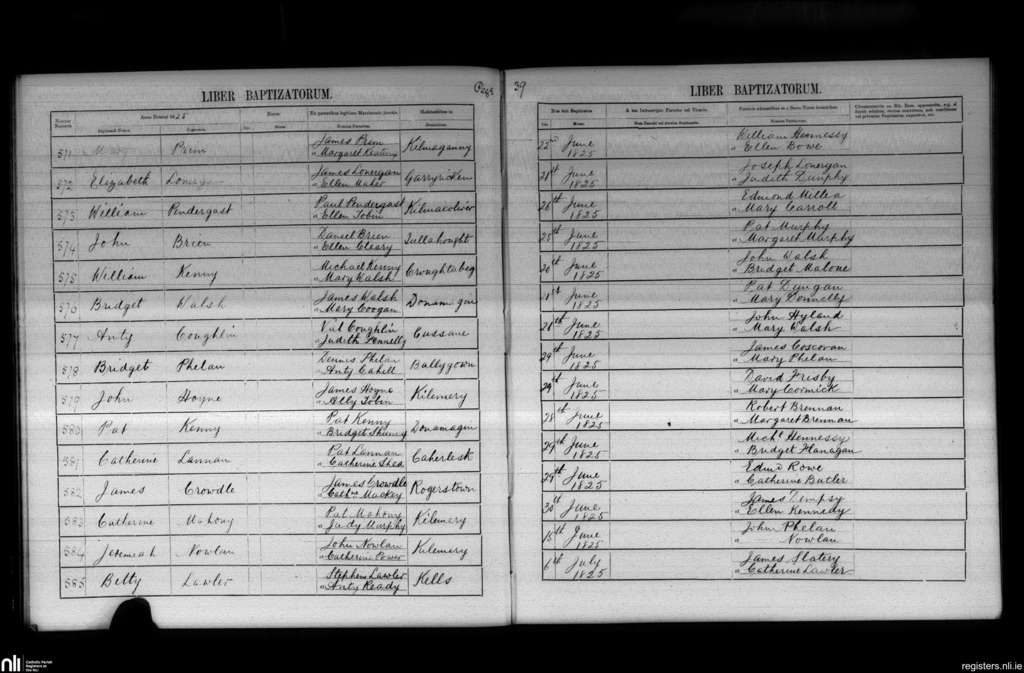 LIBER BAPTIZATORUM.
Page
39
LIBER BAPTIZATORUM.
Anno Domini 1825
571 Mary Prim James Prim Kilmaganny
" Margaret
572 Elizabeth Lonergan James Lonergan Garryricken
" Ellen Maher
573 William Pendergast Paul Pendergast Kilmacoliver
" Ellen Tobin
574 John Brien Daniel Brien Tullahought
" Ellen Cleary
575 William Kenny Michael Kenny Croughtabeg
" Mary Walsh
576 Bridget Walsh James Walsh Donamagin
" Mary Coogan
577 Anty Coughlin Pat Coughlin Cussane
" Judith Donnelly
578 Bridget Phelan Dennis Phelan Ballygown
" Anty Cahill
579 John Hoyne James Hoyne Kilemery
" Ally Tobin
580 Pat Kenny Pat Kenny Donamagin
" Bridget
581 Catherine Lannan Pat Lannan Caherlesk
" Catherine Shea
582 James Crowdle James Crowdle Rogerstown
" Cathne Mackey
583 Catherine Mahony Pat Mahony Kilemery
" Judy Murphy
584 Jeremiah Nowlan John Nowlan Kilemery
" Catherine Power
585 Betty Lawler Stephen Lawler Kells
" Anty Ready
22nd June William Hennessy
1825 " Ellen Bowe
21st June Joseph Lonergan
1825 " Judith Dunphy
26th June Edmond Millea
1825 " Mary Carroll
25th June Pat Murphy
1825 " Margaret Murphy
20th June John Walsh
1825 " Bridget Malone
June Pat Dungan
1825 " Mary Donnelly
June John Hyland
1825 " Mary Walsh
29th June James Coscoran
1825 " Mary Phelan
29th June David Frisby
1825 " Mary Cormick
28th June Robert Brennan
1825 " Margaret Brennan
29th June Michl Hennessy
1825 " Bridget Flanagan
29th June Edmd Rowe
1825 " Catherine Butler
30th June James Dempsy
1825 " Ellen Kennedy
15th June John Phelan
1825 " Nowlan
6th July James Slatery
1825 " Catherine Lawler
nli
Catholic Parish
Registers at
the NLI
registers.nli.ie